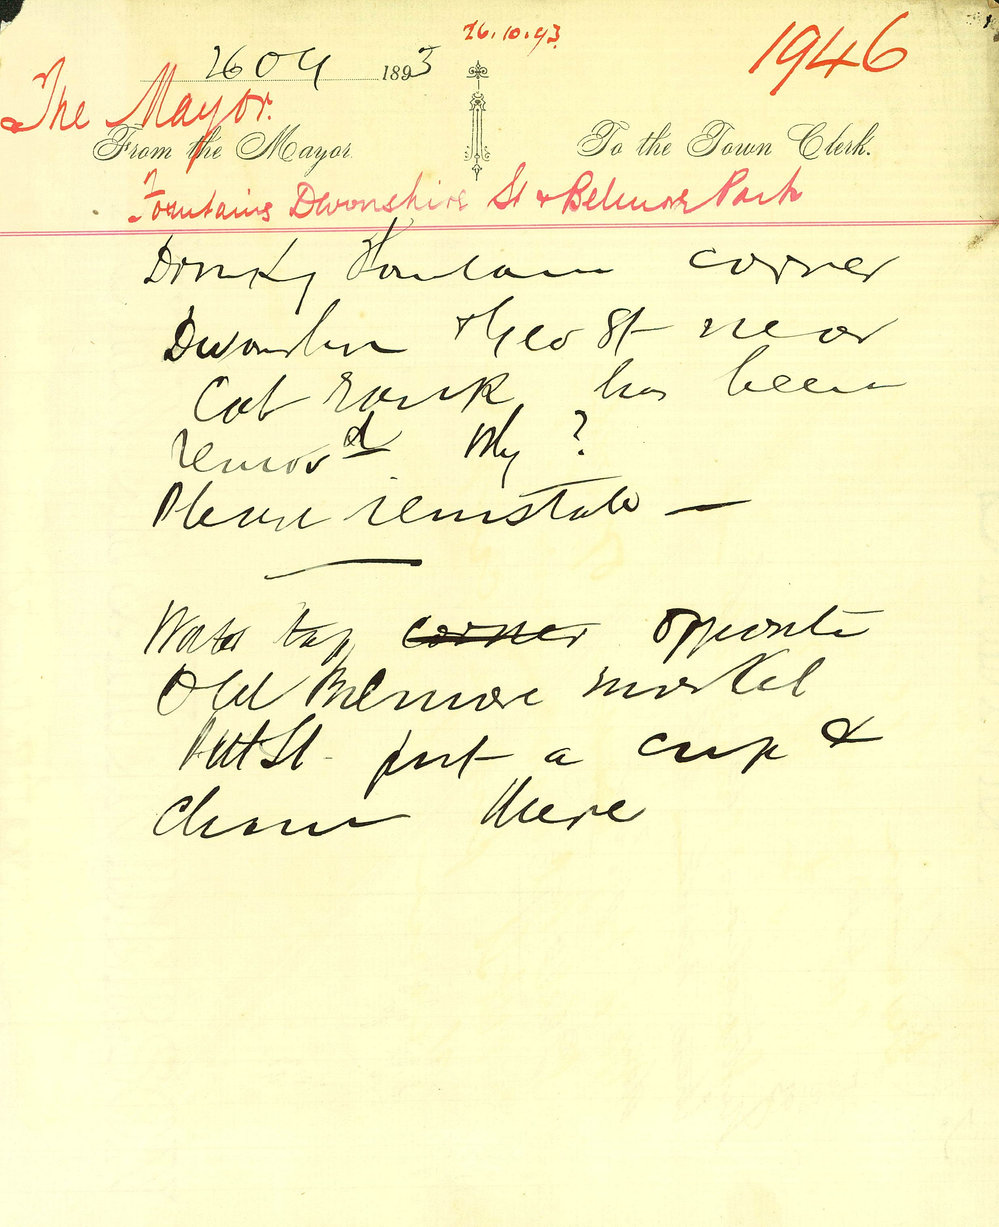 26.10.93
1946
26 Oct 1893
The Mayor.
From the Mayor. To the Town Clerk.
Fountains Devonshire St & Belmore Park
Drinkg Fountain corner
Devonshire & Geo St near
Cab rank has been
remov^d Why?
Please reinstate —
Water tap ~~corner~~ opposite
Old Belmore market
Pitt St - put a cup &
chain there